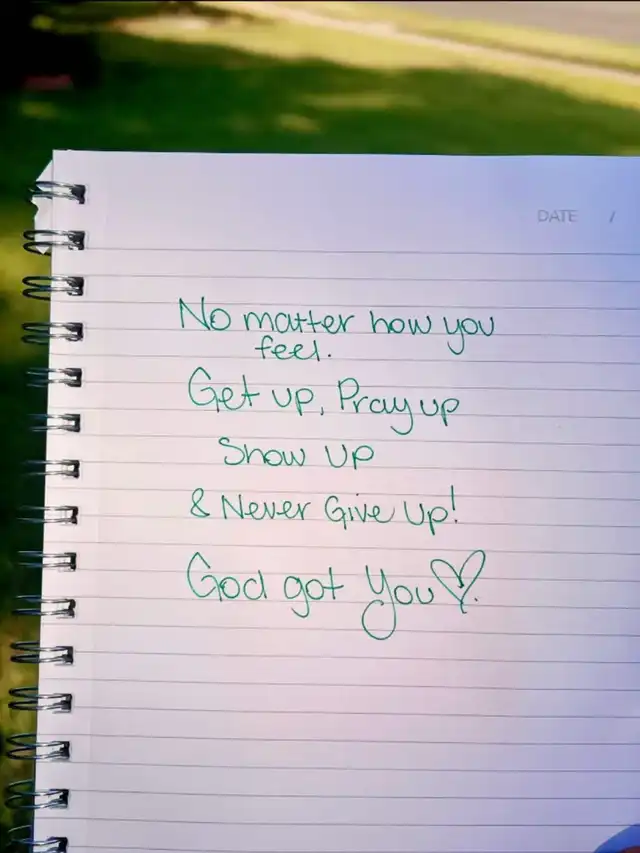 DATE /
No matter how you
feel.
Get up, Pray up
Show up
& Never Give up!
God got You♡.